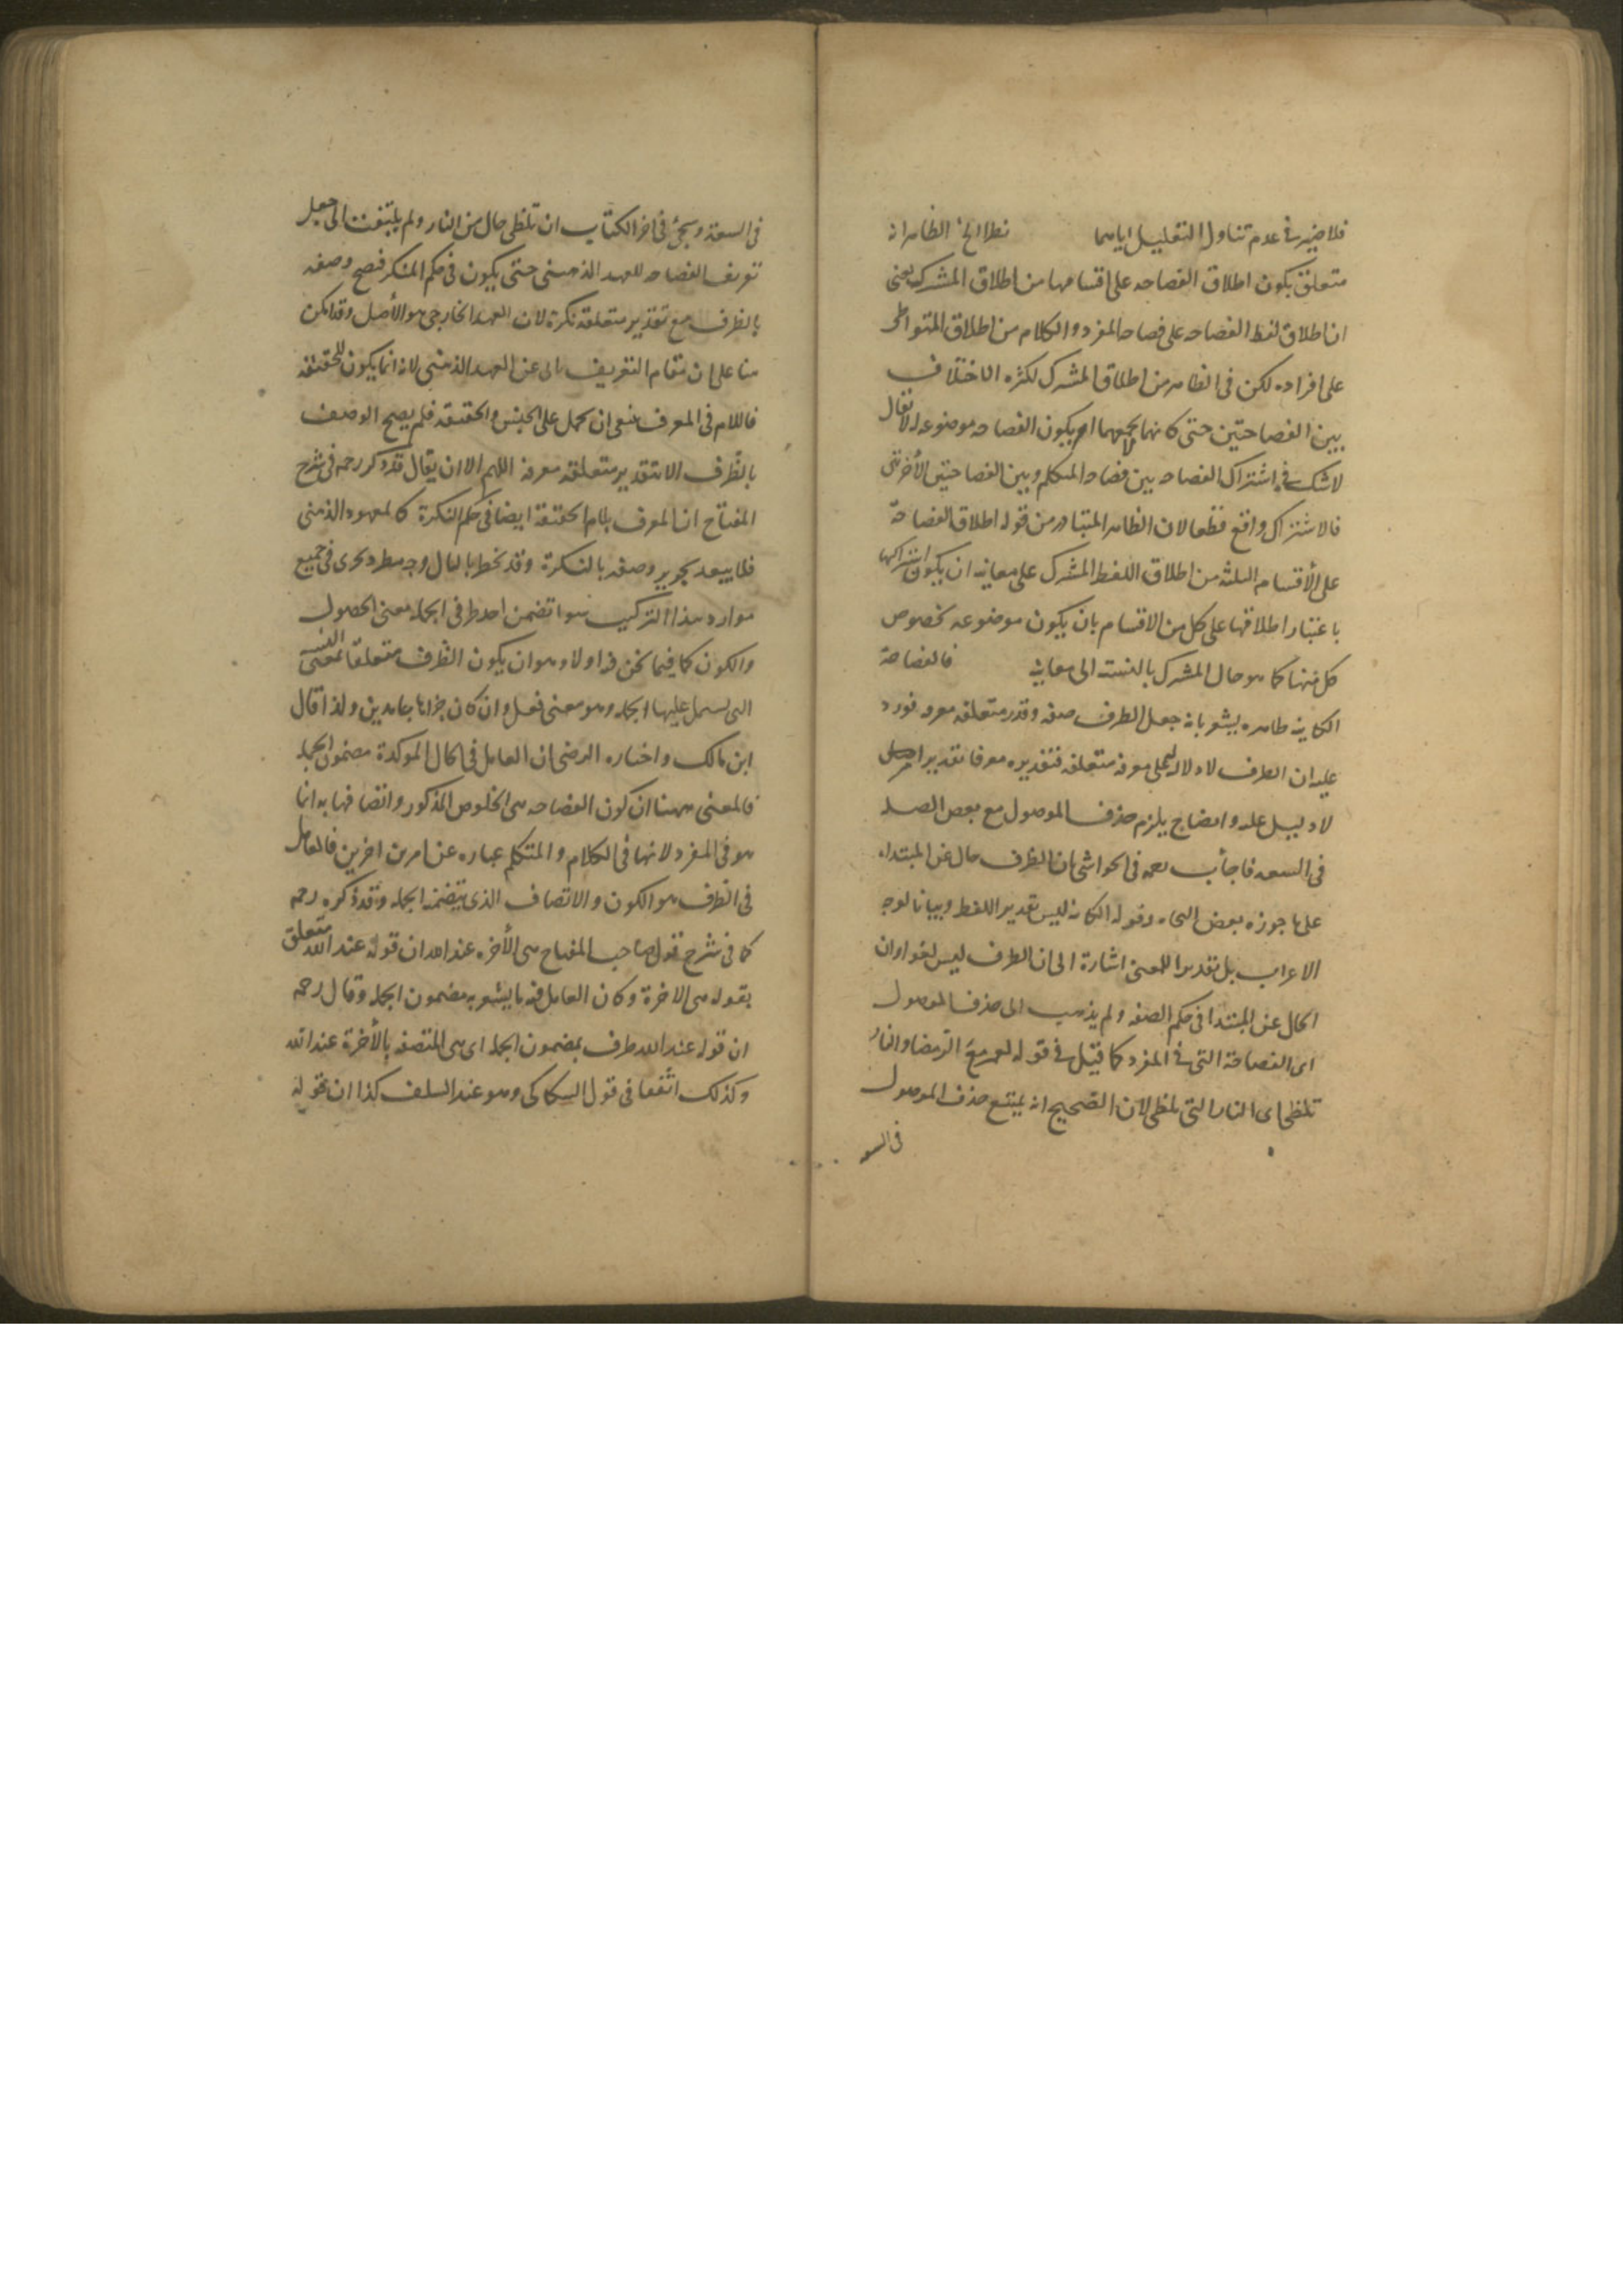 فلا ضير في عدم تناول التعليل اياهما نظرا الى الظاهر انه
متعلق بكون اطلاق الفصاحه على اقسامها من اطلاق المشترك يعني
ان اطلاق لفظ الفصاحه على فصاحه المفرد والكلام من اطلاق المتواطى
على افراده لكن في الظاهر من اطلاق المشترك لكثره الاختلاف
بين الفصاحتين حتى كانهما لا يجمعهما امر يكون الفصاحه موضوعه له لا يقال
لا شك في اشتراك الفصاحه بين فصاحه المتكلم وبين الفصاحتين الأخرتين
فالاشتراك واقع قطعا لان الظاهر المتبادر من قوله اطلاق الفصاحة
على الأقسام الثلثه من اطلاق اللفظ المشترك على معانيه ان يكون اشتراكها
باعتبار اطلاقها على كل من الاقسام بان يكون موضوعه بخصوص
كل منها كما هو حال المشترك بالنسبة الى معانيه فالفصاحة
الكاينه ظاهره يشعر بانه جعل الظرف صفه وقدر متعلقه معرفه فورد
عليه ان الظرف لا دلاله له على معرفه متعلقه فتقديره معرفا تقدير امر
لا دليل عليه وايضا ح يلزم حذف الموصول مع بعض الصله
في السعه فاجاب رحمه في الحواشي بان الظرف حال عن المبتداء
على ما جوزه بعض النحاه وقوله الكاينه ليس تقدير اللفظ وبيانا لوجه
الاعراب بل تقديرا للمعنى اشارة الى ان الظرف ليس لغوا وان
الحال عن المبتدا في حكم الصفه ولم يذهب الى حذف الموصول
اى الفصاحة التي في المفرد كما قيل في قوله لعمرو مع الرمضاء والنار
تلظى اى النار التي تلظى لان الصحيح انه يمتنع حذف الموصول
في السعه
في السعة ويجئ في اخر الكتاب ان تلظى حال من النار ولم يلتفت الى جعل
تعريف الفصاحه للعهد الذهني حتى يكون في حكم المنكر فصح وصفه
بالظرف مع تقدير متعلقه نكرة لان العهد الخارجي هو الأصل وقد امكن
هنا على ان مقام التعريف يابى عن العهد الذهني لانه انما يكون للحقيقه
فاللام في المعرف ينبغى ان يحمل على الجنس والحقيقه فلم يصح الوصف
بالظرف الا بتقدير متعلقه معرفة اللهم الا ان يقال قد ذكر رحمه في شرح
المفتاح ان المعرف بلام الحقيقه ايضا في حكم النكرة كالمعهود الذهني
فلا يبعد تجويز وصفه بالنكرة وقد يخطر بالبال وجه مطرد يجرى في جميع
موارد هذا التركيب هو ما تضمن احد طرفي الجمله معنى الحصول
والكون كما فيما نحن فيه او لا وهو ان يكون الظرف متعلقا بمعنى النسبه
التي يشتمل عليها الجمله وهو معنى فعل وان كان جزاها جامدين ولذا قال
ابن مالك واختاره الرضى ان العامل في الحال الموكدة مضمون الجمله
فالمعنى ههنا ان كون الفصاحه هى الخلوص المذكور واتصافها به انما
هو في المفرد لانها في الكلام والمتكلم عباره عن امرين اخرين فالعامل
في الظرف هو الكون والاتصاف الذى يتضمنه الجمله وقد ذكره رحمه
كما في شرح قول صاحب المفتاح هى الأخره عند الله ان قوله عند الله متعلق
بقوله هى الاخرة وكان العامل فيه ما يشعر به مضمون الجمله وقال رحمه
ان قوله عند الله ظرف بمضمون الجمله اى هى المتصفه بالأخرة عند الله
وكذلك في قول السكاكى وهو عند السلف كذا ان قوله